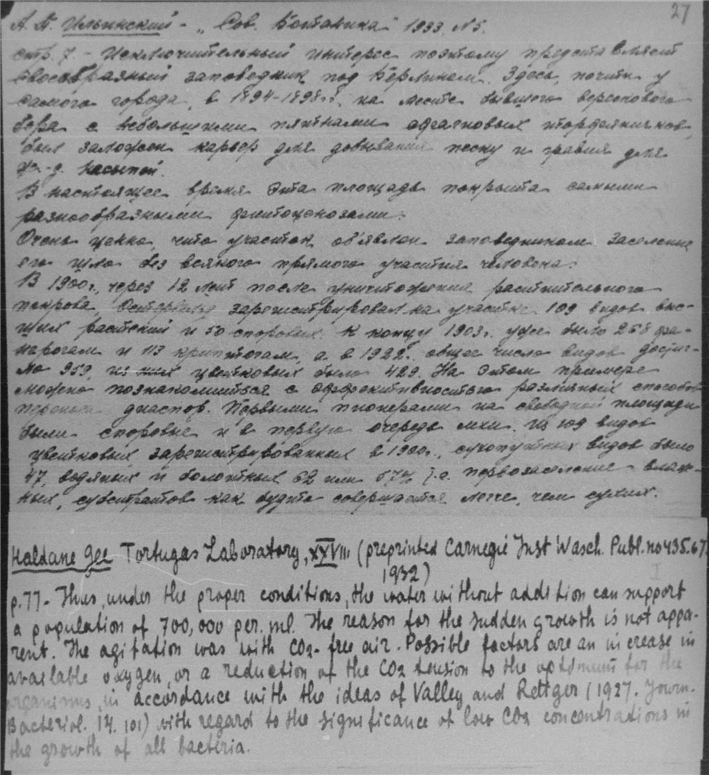 27
А. П. Ильинский - „Сов. Ботаника" 1933 №5.
стр. 7 - Исключительный интерес поэтому представляет
своеобразный заповедник под Берлином. Здесь, почти у
самого города, в 1894-1898г. на месте бывшего верескового
бора с небольшими пятнами сфагновых торфяничков,
был заложен карьер для добывания песку и гравия для
ж.-д. насыпей.
В настоящее время эта площадь покрыта самыми
разнообразными фитоценозами.
Очень ценно, что участок объявлен заповедником. Заселение
его шло без всякого прямого участия человека.
В 1900г., через 12 лет после уничтожения растительного
покрова, зарегистрировал на участке 109 видов выс-
ших растений и 50 споровых. К концу 1903г. уже было 258 фа-
нерогам и 113 криптогам, а в 1922г. общее число видов достиг-
ло 959, из них цветковых было 429. На этом примере
можно познакомиться с эффективностью различных способов
переноса диаспор. Первыми пионерами на свободной площади
были споровые и в первую очередь мхи. Из 109 видов
цветковых зарегистрированных в 1900г., сухопутных видов было
47, водяных и болотных 62 или 57% т.е. первозаселение влаж-
ных субстратов как будто совершается легче, чем сухих.
Haldane Gee Tortugas Laboratory, XXVIII (preprinted Carnegie Inst Wasch. Publ. no 435. 67.
1932)
p.77 - Thus, under the proper conditions, the water without addition can support
a population of 700,000 per. ml. The reason for the sudden growth is not appa-
rent. The agitation was with CO2-free air. Possible factors are an increase in
available oxygen, or a reduction of the CO2 tension to the optimum for the
organisms, in accordance with the ideas of Valley and Rettger (1927. Journ.
Bacteriol. 14. 101) with regard to the significance of low CO2 concentrations in
the growth of all bacteria.